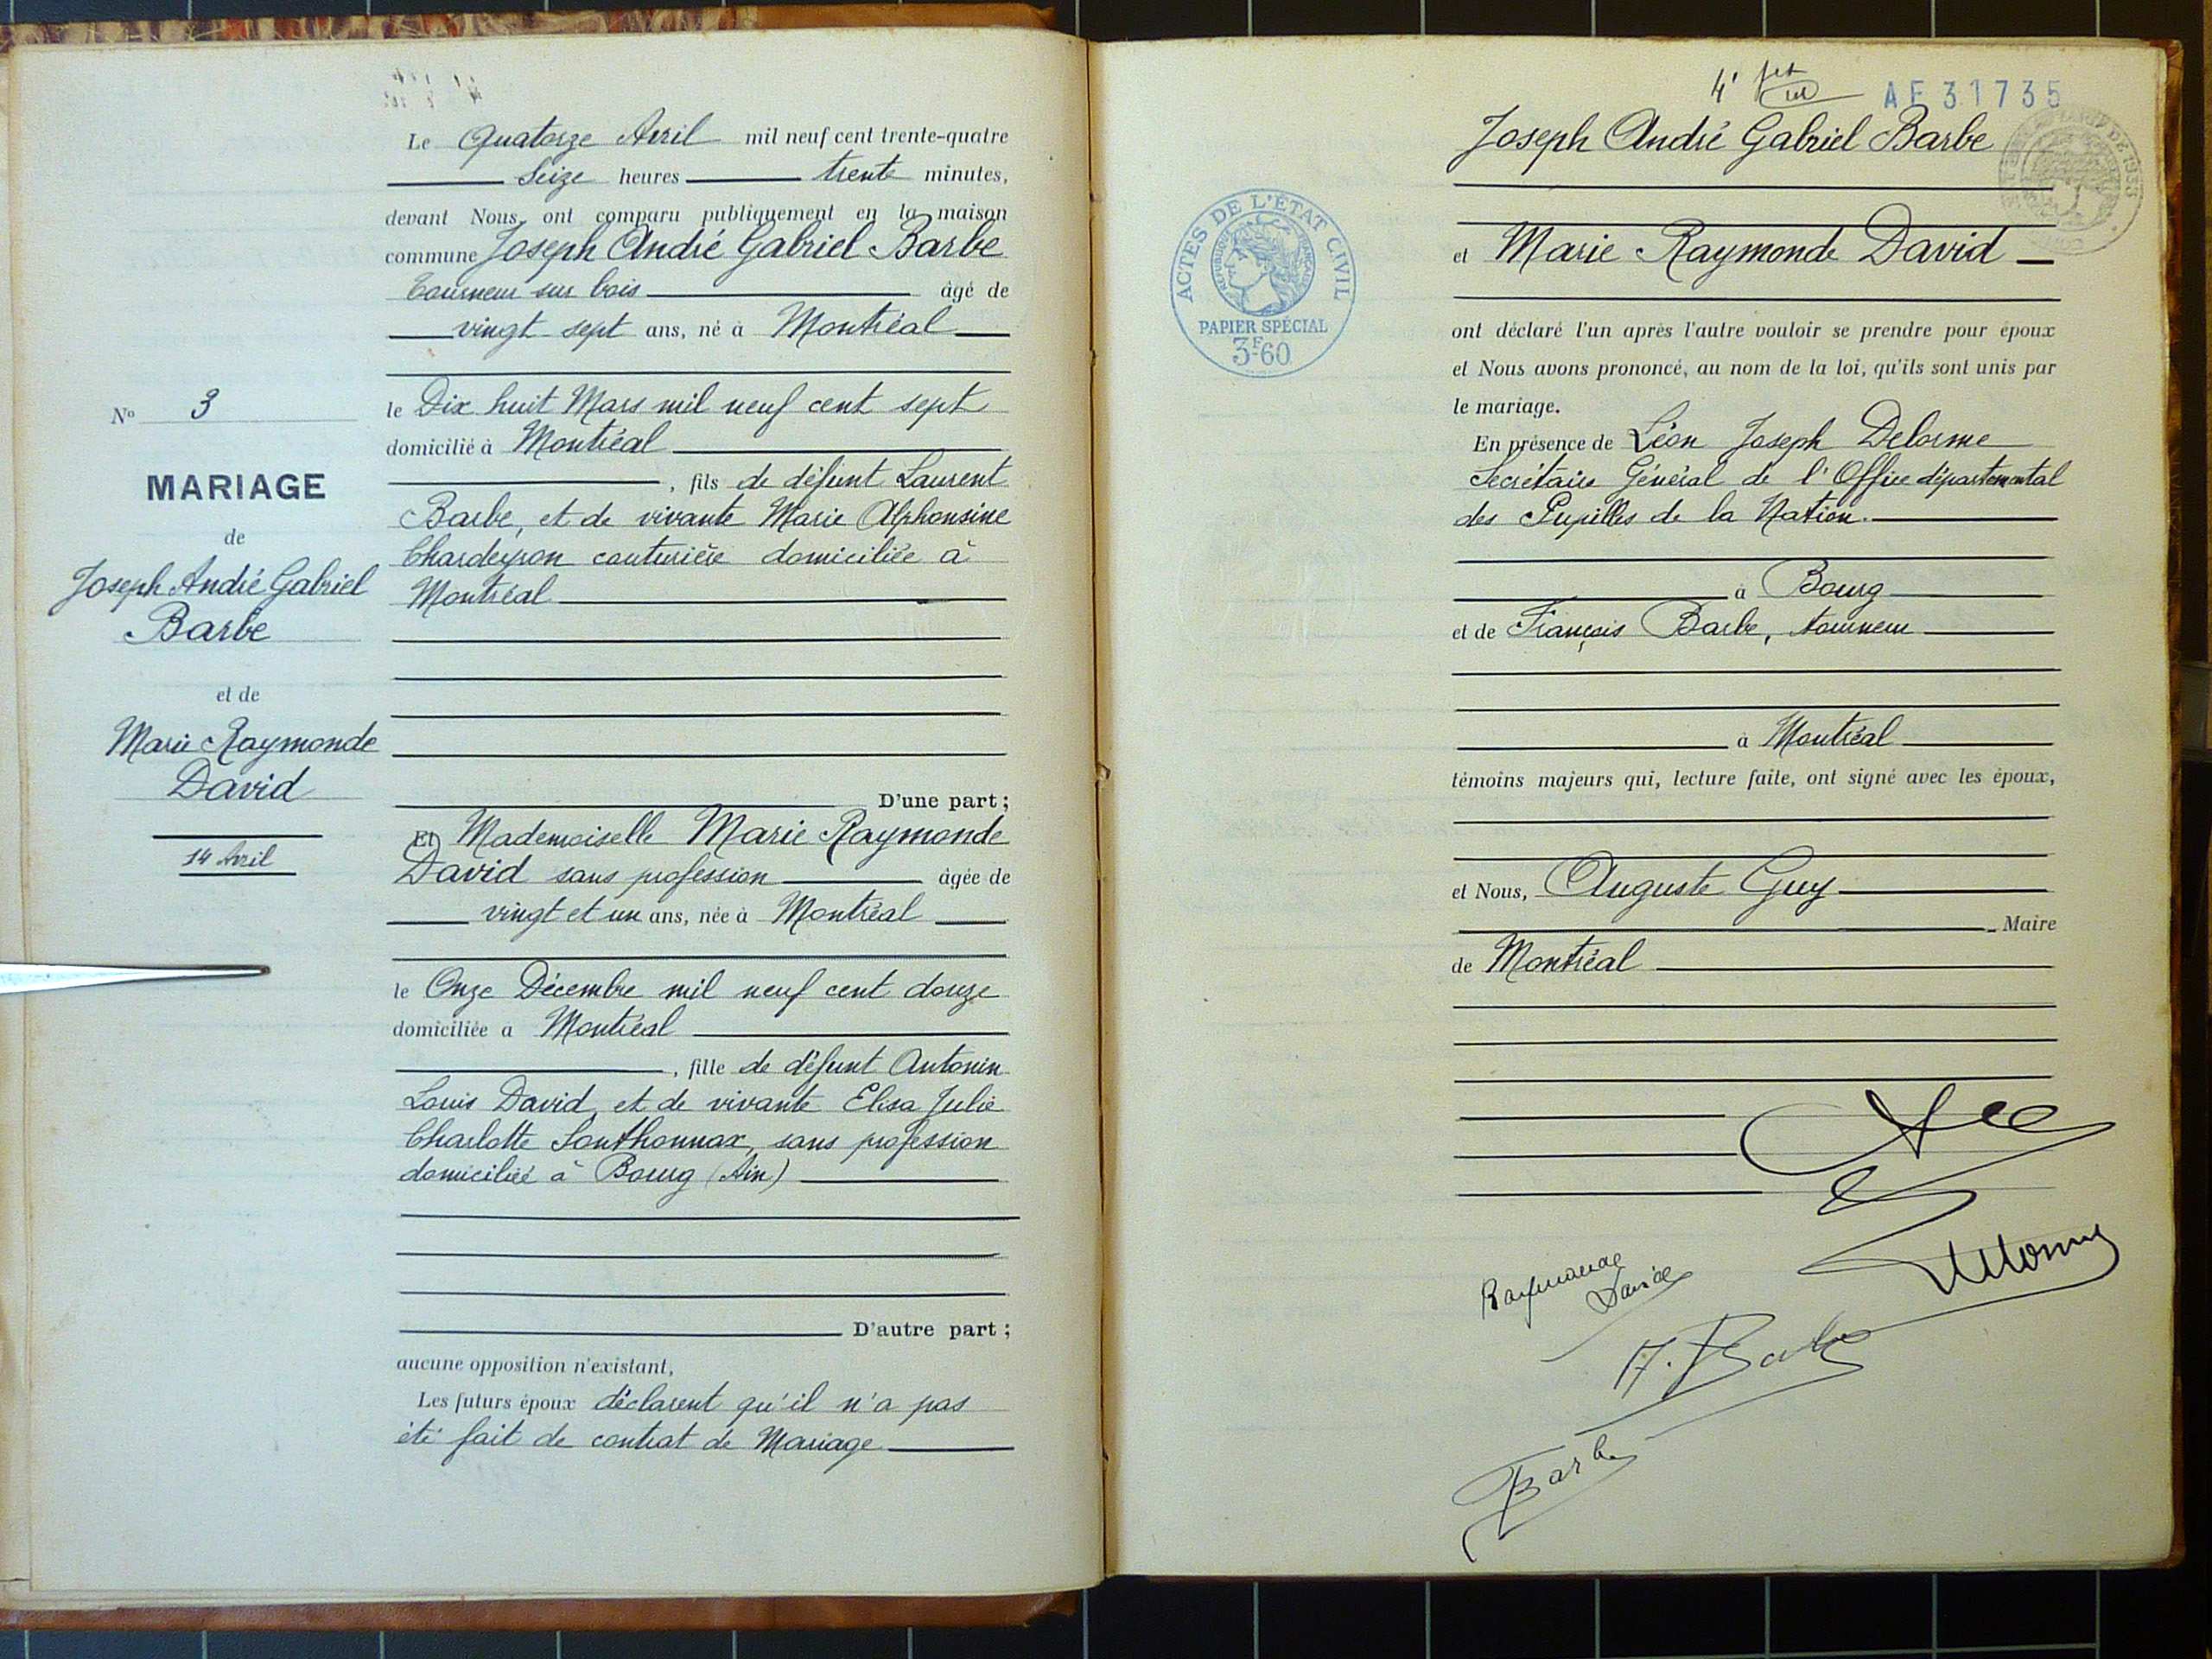 Le Quatorze Avril mil neuf cent trente-quatre
Seize heures trente minutes,
devant Nous ont comparu publiquement en la maison
commune Joseph André Gabriel Barbe
Tourneur sur bois âgé de
vingt sept ans, né à Montréal
le Dix huit Mars mil neuf cent sept
domicilié à Montréal
, fils de défunt Laurent
Barbe, et de vivante Marie Alphonsine
Chardeyron couturière domiciliée à
Montréal
D'une part ;
Et Mademoiselle Marie Raymonde
David sans profession âgée de
vingt et un ans, née à Montréal
le Onze Décembre mil neuf cent douze
domiciliée à Montréal
, fille de défunt Antonin
Louis David, et de vivante Elisa Julie
Charlotte Sonthonnax, sans profession
domiciliée à Bourg (Ain)
D'autre part ;
aucune opposition n'existant,
Les futurs époux déclarent qu'il n'a pas
été fait de contrat de Mariage
No 3
MARIAGE
de
Joseph André Gabriel
Barbe
et de
Marie Raymonde
David
14 Avril
4e
AF 31735
Joseph André Gabriel Barbe
et Marie Raymonde David
ont déclaré l'un après l'autre vouloir se prendre pour époux
et Nous avons prononcé, au nom de la loi, qu'ils sont unis par
le mariage.
En présence de Léon Joseph Delorme
Secrétaire Général de l'Office départemental
des Pupilles de la Nation.
à Bourg
et de François Barbe, tourneur
à Montréal
témoins majeurs qui, lecture faite, ont signé avec les époux,
et Nous, Auguste Guy
Maire
de Montréal
Raymonde
David
A. Barbe
Barbe
ACTES DE L'ÉTAT CIVIL
RÉPUBLIQUE FRANÇAISE
PAPIER SPÉCIAL
3F60